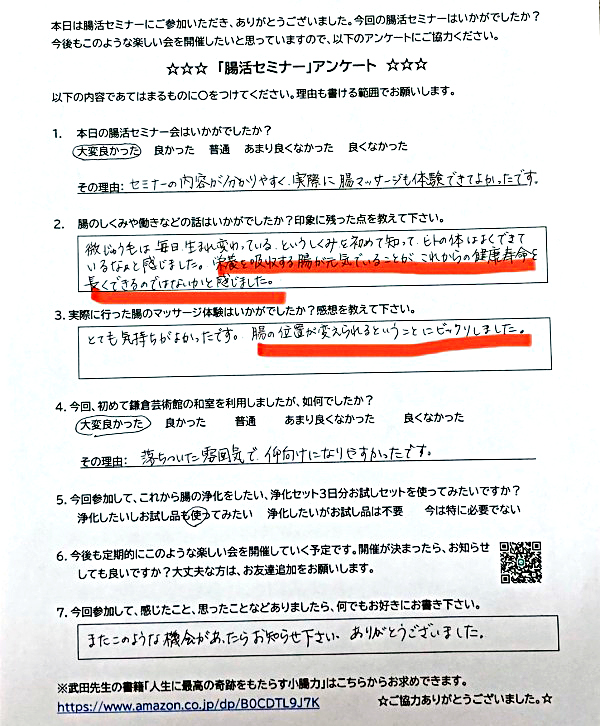 本日は腸活セミナーにご参加いただき、ありがとうございました。今回の腸活セミナーはいかがでしたか?
今後もこのような楽しい会を開催したいと思っていますので、以下のアンケートにご協力ください。
☆☆☆ 「腸活セミナー」アンケート ☆☆☆
以下の内容であてはまるものに〇をつけてください。理由も書ける範囲でお願いします。
1. 本日の腸活セミナー会はいかがでしたか?
大変良かった 良かった 普通 あまり良くなかった 良くなかった
その理由: セミナーの内容が分かりやすく、実際に腸マッサージも体験できてよかったです。
2. 腸のしくみや働きなどの話はいかがでしたか?印象に残った点を教えて下さい。
微じゅう毛は毎日生まれ変わっている、というしくみを初めて知って、ヒトの体はよくできて
いるなぁと感じました。栄養を吸収する腸が元気でいることが、これからの健康寿命を
長くできるのではないかと感じました。
3. 実際に行った腸のマッサージ体験はいかがでしたか?感想を教えて下さい。
とても気持ちがよかったです。腸の位置が変えられるということにビックリしました。
4. 今回、初めて鎌倉芸術館の和室を利用しましたが、如何でしたか?
大変良かった 良かった 普通 あまり良くなかった 良くなかった
その理由: 落ちついた雰囲気で、仰向けになりやすかったです。
5. 今回参加して、これから腸の浄化をしたい、浄化セット3日分お試しセットを使ってみたいですか?
浄化したいしお試し品も使ってみたい 浄化したいがお試し品は不要 今は特に必要でない
6. 今後も定期的にこのような楽しい会を開催していく予定です。開催が決まったら、お知らせ
しても良いですか?大丈夫な方は、お友達追加をお願いします。
7. 今回参加して、感じたこと、思ったことなどありましたら、何でもお好きにお書き下さい。
またこのような機会があったらお知らせ下さい、ありがとうございました。
※武田先生の書籍「人生に最高の奇跡をもたらす小腸力」はこちらからお求めできます。
https://www.amazon.co.jp/dp/B0CDTL9J7K ☆ご協力ありがとうございました。☆